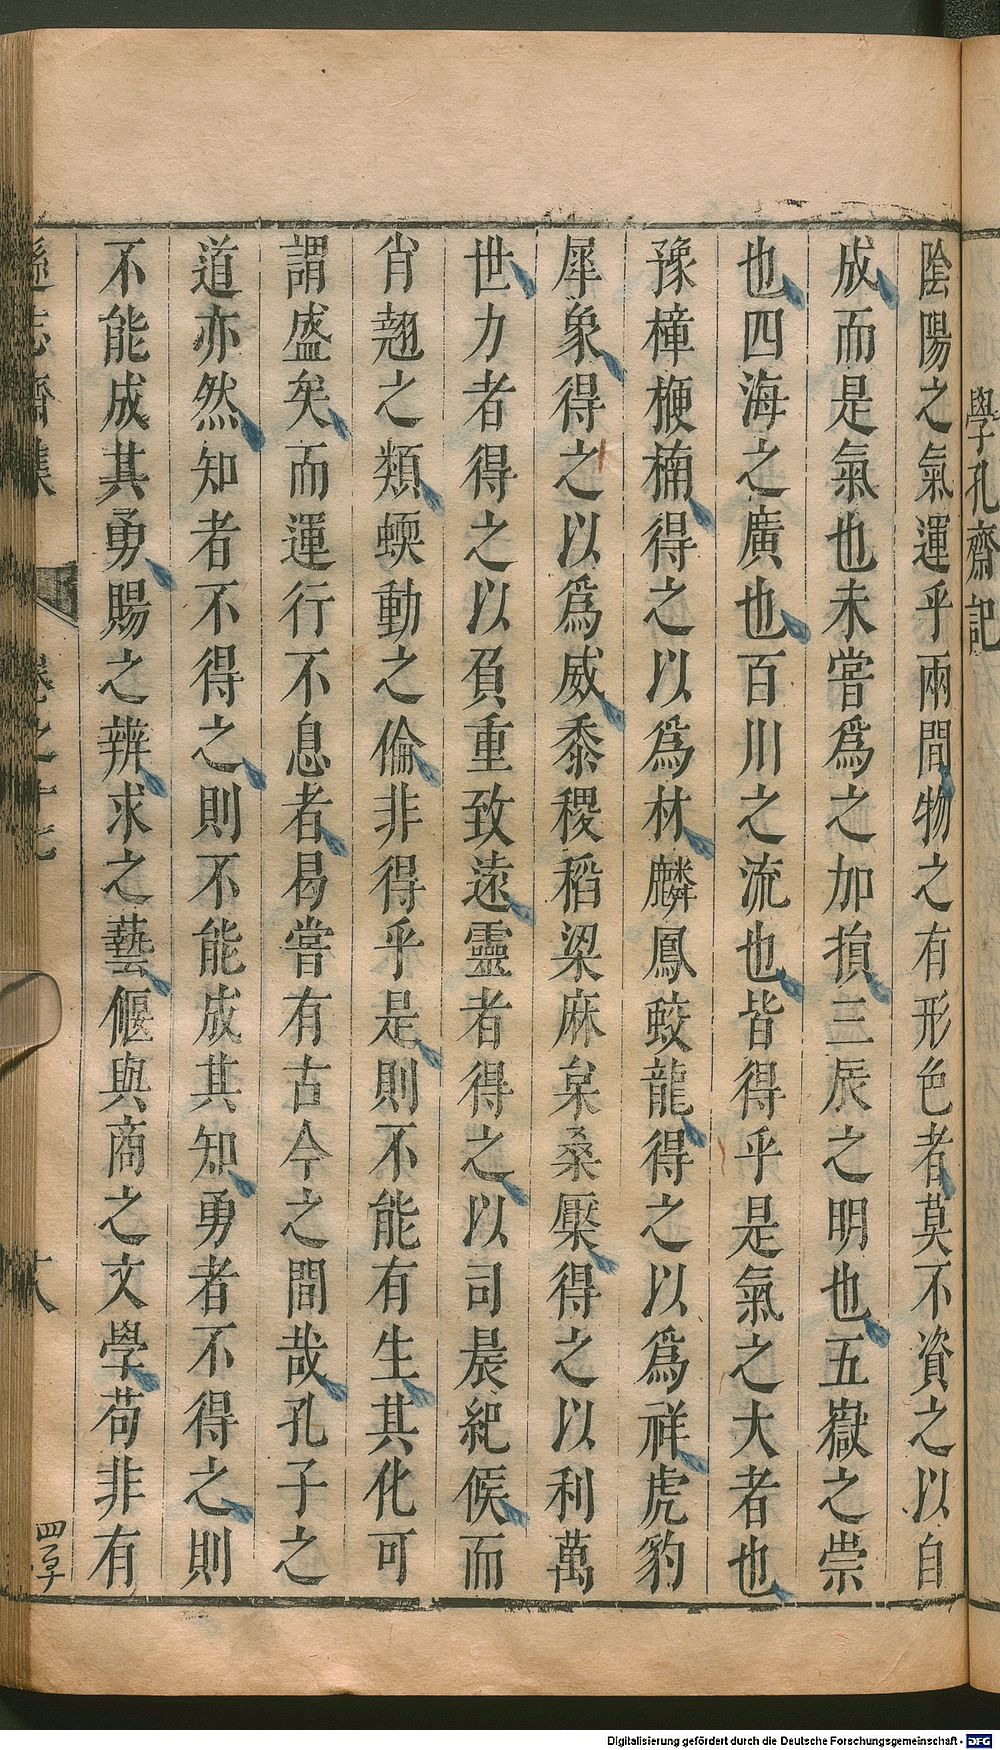 學孔齋記
陰陽之氣運乎兩間物之有形色者莫不資之以自
成而是氣也未嘗爲之加損三辰之明也五嶽之崇
也四海之廣也百川之流也皆得乎是氣之大者也
豫樟楩楠得之以爲林麟鳳蛟龍得之以爲祥虎豹
犀象得之以爲威黍稷稻粱麻枲桑檿得之以利萬
世力者得之以負重致遠靈者得之以司晨紀候而
肖翹之類蝡動之倫非得乎是則不能有生其化可
謂盛矣而運行不息者曷嘗有古今之間哉孔子之
道亦然知者不得之則不能成其知勇者不得之則
不能成其勇賜之辨求之藝偃與商之文學苟非有
遜志齋集
卷之十七
四子
Digitalisierung gefördert durch die Deutsche Forschungsgemeinschaft - DFG